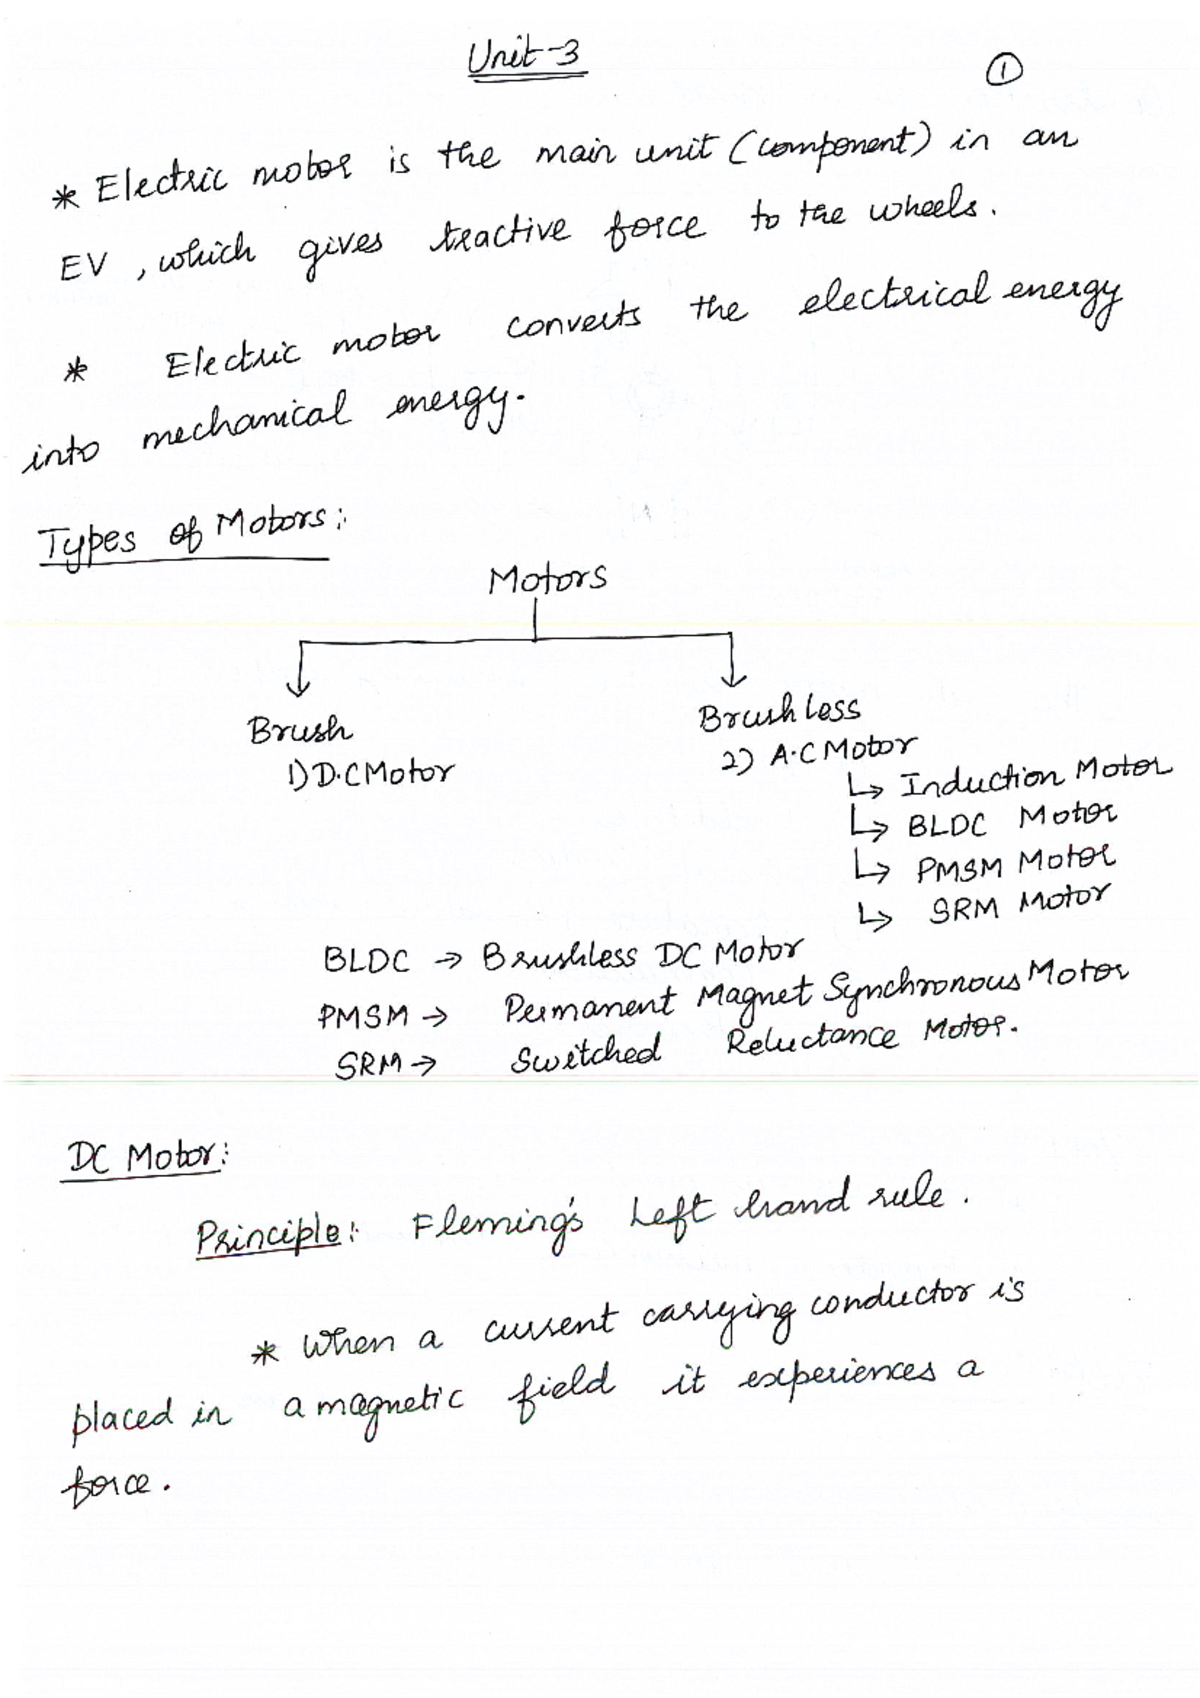 Unit-3
①
* Electric motor is the main unit (component) in an
EV, which gives tractive force to the wheels.
* Electric motor converts the electrical energy
into mechanical energy.
Types of Motors:
Motors
Brush
1) D.C Motor
Brushless
2) A.C Motor
↳ Induction Motor
↳ BLDC Motor
↳ PMSM Motor
↳ SRM Motor
BLDC → Brushless DC Motor
PMSM → Permanent Magnet Synchronous Motor
SRM → Switched Reluctance Motor.
DC Motor:
Principle: Fleming's Left hand rule.
* When a current carrying conductor is
placed in a magnetic field it experiences a
force.